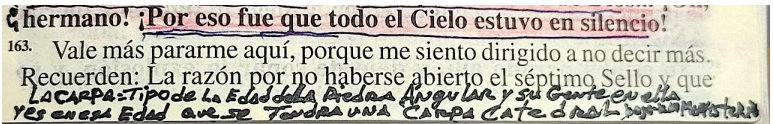 ¡hermano! ¡Por eso fue que todo el Cielo estuvo en silencio!
163. Vale más pararme aquí, porque me siento dirigido a no decir más.
Recuerden: La razón por no haberse abierto el séptimo Sello y que
LA CARPA=TIPO de LA EDAD de LA PIEDRA ANGULAR Y SU GENTE EN ELLA
Y ES EN ESA EDAD QUE SE TENDRA UNA CARPA CATEDRAL